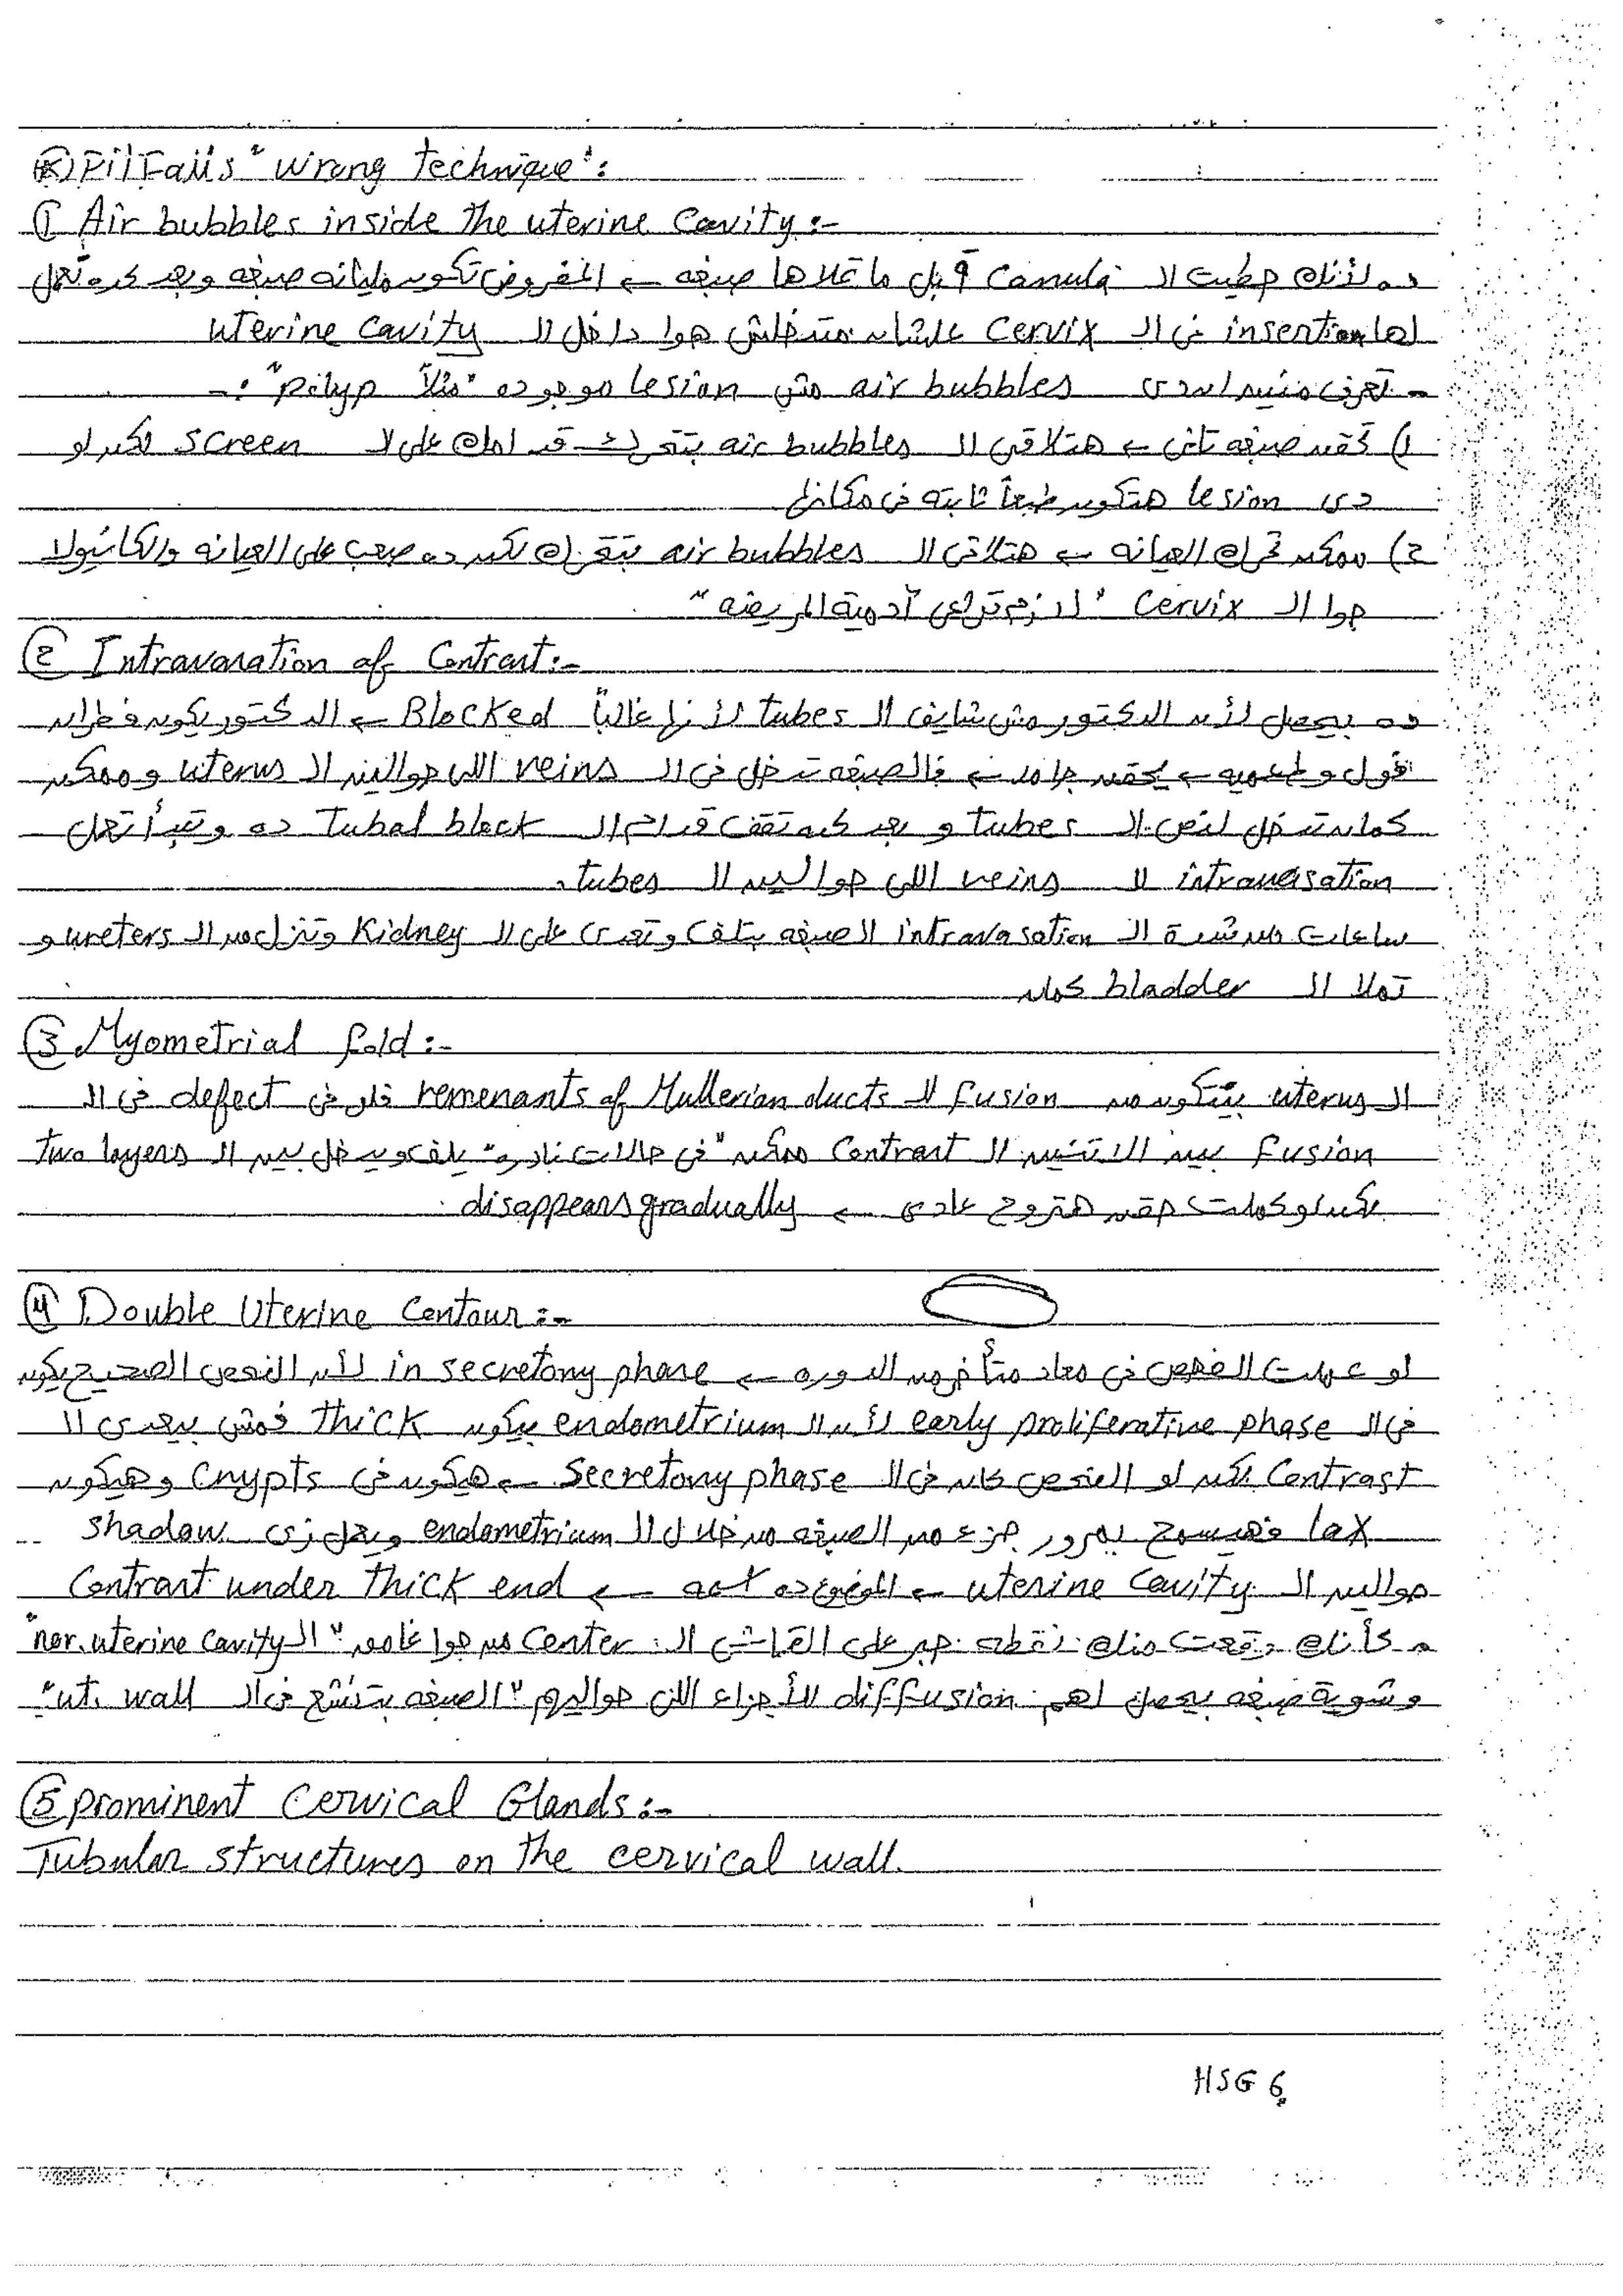 (*) PitFalls "Wrong technique":
① Air bubbles inside the uterine Cavity :-
ده لأنك حطيت الـ Canula قبل ما تملاها صبغه ← المفروض تكون مليانه صبغه وبعد كده تعمل
لها insertion فى الـ Cervix علشان متدخلش هوا داخل الـ uterine cavity
- تعرف منين ان دى air bubbles مش lesion موجوده "مثلاً polyp" :-
1) تحقن صبغه تانى ← هتلاقى الـ air bubbles بتتحرك قدامك على الـ screen لكن لو
دى lesion هتكون طبعاً ثابته فى مكانها
2) ممكن تحرك العيانه ← هتلاقى الـ air bubbles بتتحرك لكن ده صعب على العيانه والكانيولا
جوا الـ Cervix "لازم تراعى آدمية المريضه"
② Intravasation of Contrast:-
ده بيحصل لأن الدكتور مش شايف الـ tubes لأنها غالباً Blocked ← الدكتور يكون فطران
فول وطعميه ← يحقن جامد ← فالصبغه تدخل فى الـ veins اللى حوالين الـ uterus وممكن
كمان تدخل لنص الـ tubes و بعد كده تقف قدام الـ Tubal block ده وتبدأ تعمل
intravasation لـ veins اللى حوالين الـ tubes.
ساعات من شدة الـ intravasation الصبغه بتلف وتعدى على الـ Kidney وتنزل من الـ ureters و
تملا الـ bladder كمان
③ Myometrial fold :-
الـ uterus بيتكون من fusion لـ remenants of Mullerian ducts فلو فى defect فى الـ
fusion بين الاتنين الـ Contrast ممكن "فى حالات نادره" يلف ويدخل بين الـ two layers
لكن لو كملت حقن هتروح عادى ← disappears gradually
④ Double Uterine Contour :-
لو عملت الفحص فى معاد متأخر من الدوره ← in secretory phase لأن الفحص الصحيح يكون
فى الـ early proliferative phase لأن الـ endometrium بيكون thick فمش بيعدى الـ
Contrast لكن لو الفحص كان فى الـ Secretory phase ← هيكون فى Crypts وهيكون
lax فهيسمح بمرور جزء من الصبغه من خلال الـ endometrium ويعمل زى shadow
حوالين الـ uterine cavity ← الموضوع ده ← Contrast under thick end
← كأنك وقعت منك نقطه حبر على القماش الـ Center من جوا غامق "الـ nor. uterine cavity"
وشوية صبغه يحصل لهم diffusion للأجزاء اللى حواليهم "الصبغه بترشح فى الـ ut. wall"
⑤ prominent Cervical Glands :-
Tubular structures on the cervical wall.
HSG 6